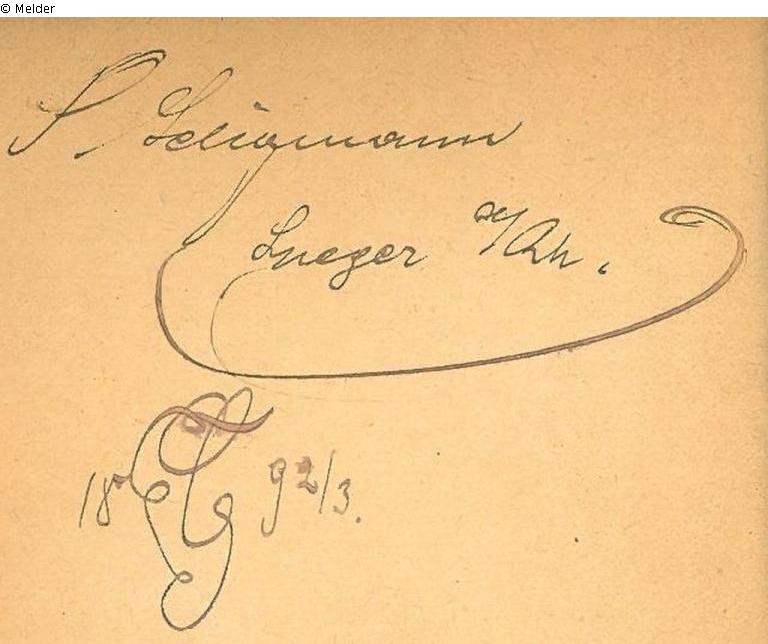 © Melder
S. Seligmann
Speyer a/Rh.
18 92/3.